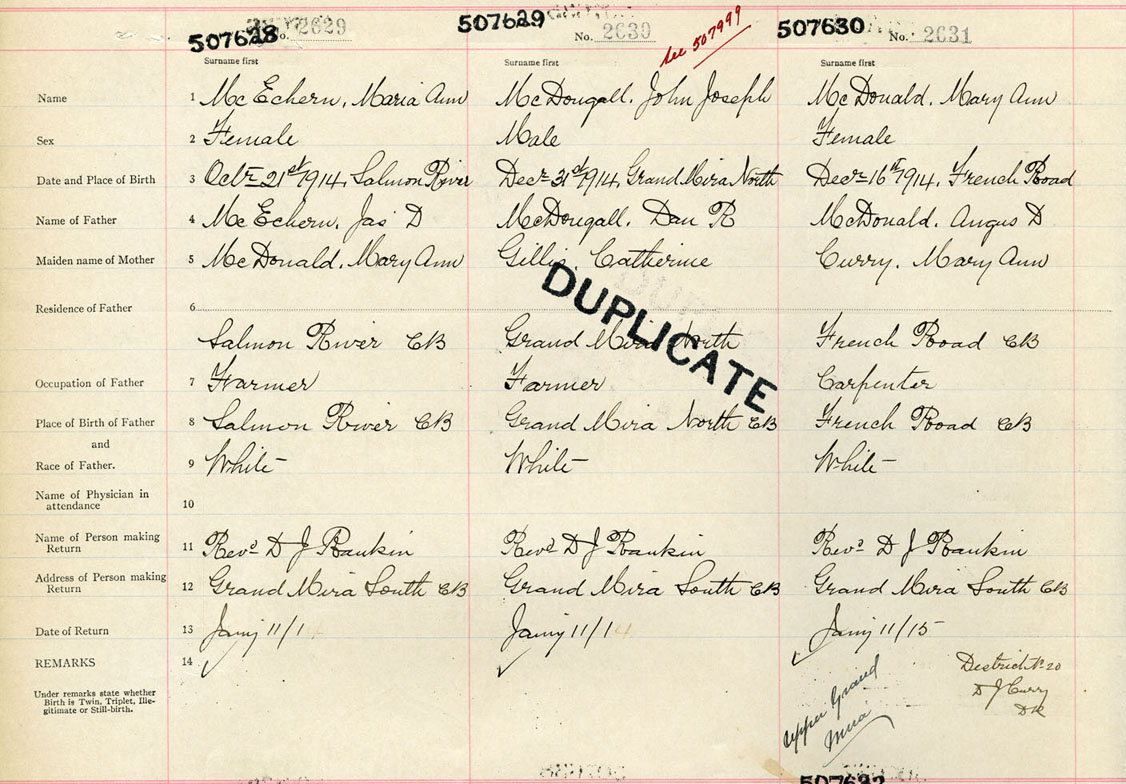 507628 No. 2629 507629 No. 2630 See 507999 507630 No. 2631
Surname first Surname first Surname first
Name 1 McEchern, Maria Ann McDougall, John Joseph McDonald, Mary Ann
Sex 2 Female Male Female
Date and Place of Birth 3 Octr 21st 1914, Salmon River Decr 31st 1914, Grand Mira North Decr 16th 1914, French Road
Name of Father 4 McEchern, Jas D McDougall, Dan R McDonald, Angus D
Maiden name of Mother 5 McDonald, Mary Ann Gillis, Catherine Curry, Mary Ann
DUPLICATE
Residence of Father 6
Salmon River CB Grand Mira North French Road CB
Occupation of Father 7 Farmer Farmer Carpenter
Place of Birth of Father 8 Salmon River CB Grand Mira North CB French Road CB
and
Race of Father. 9 White White White
Name of Physician in
attendance 10
Name of Person making
Return 11 Revd D J Rankin Revd D J Rankin Revd D J Rankin
Address of Person making
Return 12 Grand Mira South CB Grand Mira South CB Grand Mira South CB
Date of Return 13 Jany 11/1 Jany 11/1 Jany 11/15
REMARKS 14
Under remarks state whether
Birth is Twin, Triplet, Ille-
gitimate or Still-birth.
Upper Grand
Mira
District No 20
D J Curry
DR
507632